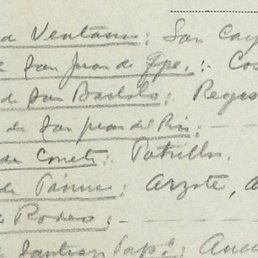 de Ventanas: San Cay
San Juan de Gpe.: Cos
de San Bartolo: Reyes
de San Juan del Rio: —
de Coneto: Potrillos.
de Pánuco: Arzate, A
Rodeo: —
Santiago Papº: